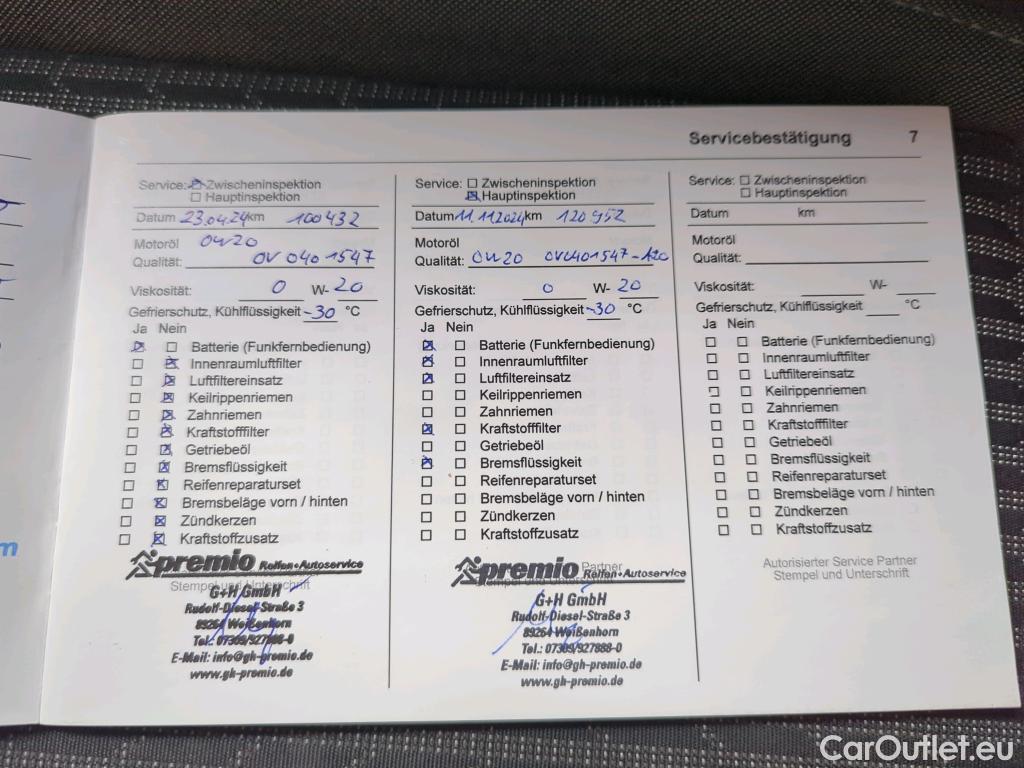 Servicebestätigung 7
Service: Zwischeninspektion
Hauptinspektion
Datum 23.04.24 km 100432
Motoröl 0W20
Qualität: OV 040 1547
Viskosität: 0 W- 20
Gefrierschutz, Kühlflüssigkeit -30 °C
Ja Nein
Batterie (Funkfernbedienung)
Innenraumluftfilter
Luftfiltereinsatz
Keilrippenriemen
Zahnriemen
Kraftstofffilter
Getriebeöl
Bremsflüssigkeit
Reifenreparaturset
Bremsbeläge vorn / hinten
Zündkerzen
Kraftstoffzusatz
premio Reifen+Autoservice
Stempel und Unterschrift
G+H GmbH
Rudolf-Diesel-Straße 3
89264 Weißenhorn
Tel.: 07309/927888-0
E-Mail: info@gh-premio.de
www.gh-premio.de
Service: Zwischeninspektion
Hauptinspektion
Datum 11.11.2024 km 120952
Motoröl
Qualität: 0W20 OV0401547-A20
Viskosität: 0 W- 20
Gefrierschutz, Kühlflüssigkeit -30 °C
Ja Nein
Batterie (Funkfernbedienung)
Innenraumluftfilter
Luftfiltereinsatz
Keilrippenriemen
Zahnriemen
Kraftstofffilter
Getriebeöl
Bremsflüssigkeit
Reifenreparaturset
Bremsbeläge vorn / hinten
Zündkerzen
Kraftstoffzusatz
Partner
premio Reifen+Autoservice
G+H GmbH
Rudolf-Diesel-Straße 3
89264 Weißenhorn
Tel.: 07309/927888-0
E-Mail: info@gh-premio.de
www.gh-premio.de
Service: Zwischeninspektion
Hauptinspektion
Datum km
Motoröl
Qualität:
Viskosität: W-
Gefrierschutz, Kühlflüssigkeit °C
Ja Nein
Batterie (Funkfernbedienung)
Innenraumluftfilter
Luftfiltereinsatz
Keilrippenriemen
Zahnriemen
Kraftstofffilter
Getriebeöl
Bremsflüssigkeit
Reifenreparaturset
Bremsbeläge vorn / hinten
Zündkerzen
Kraftstoffzusatz
Autorisierter Service Partner
Stempel und Unterschrift
CarOutlet.eu